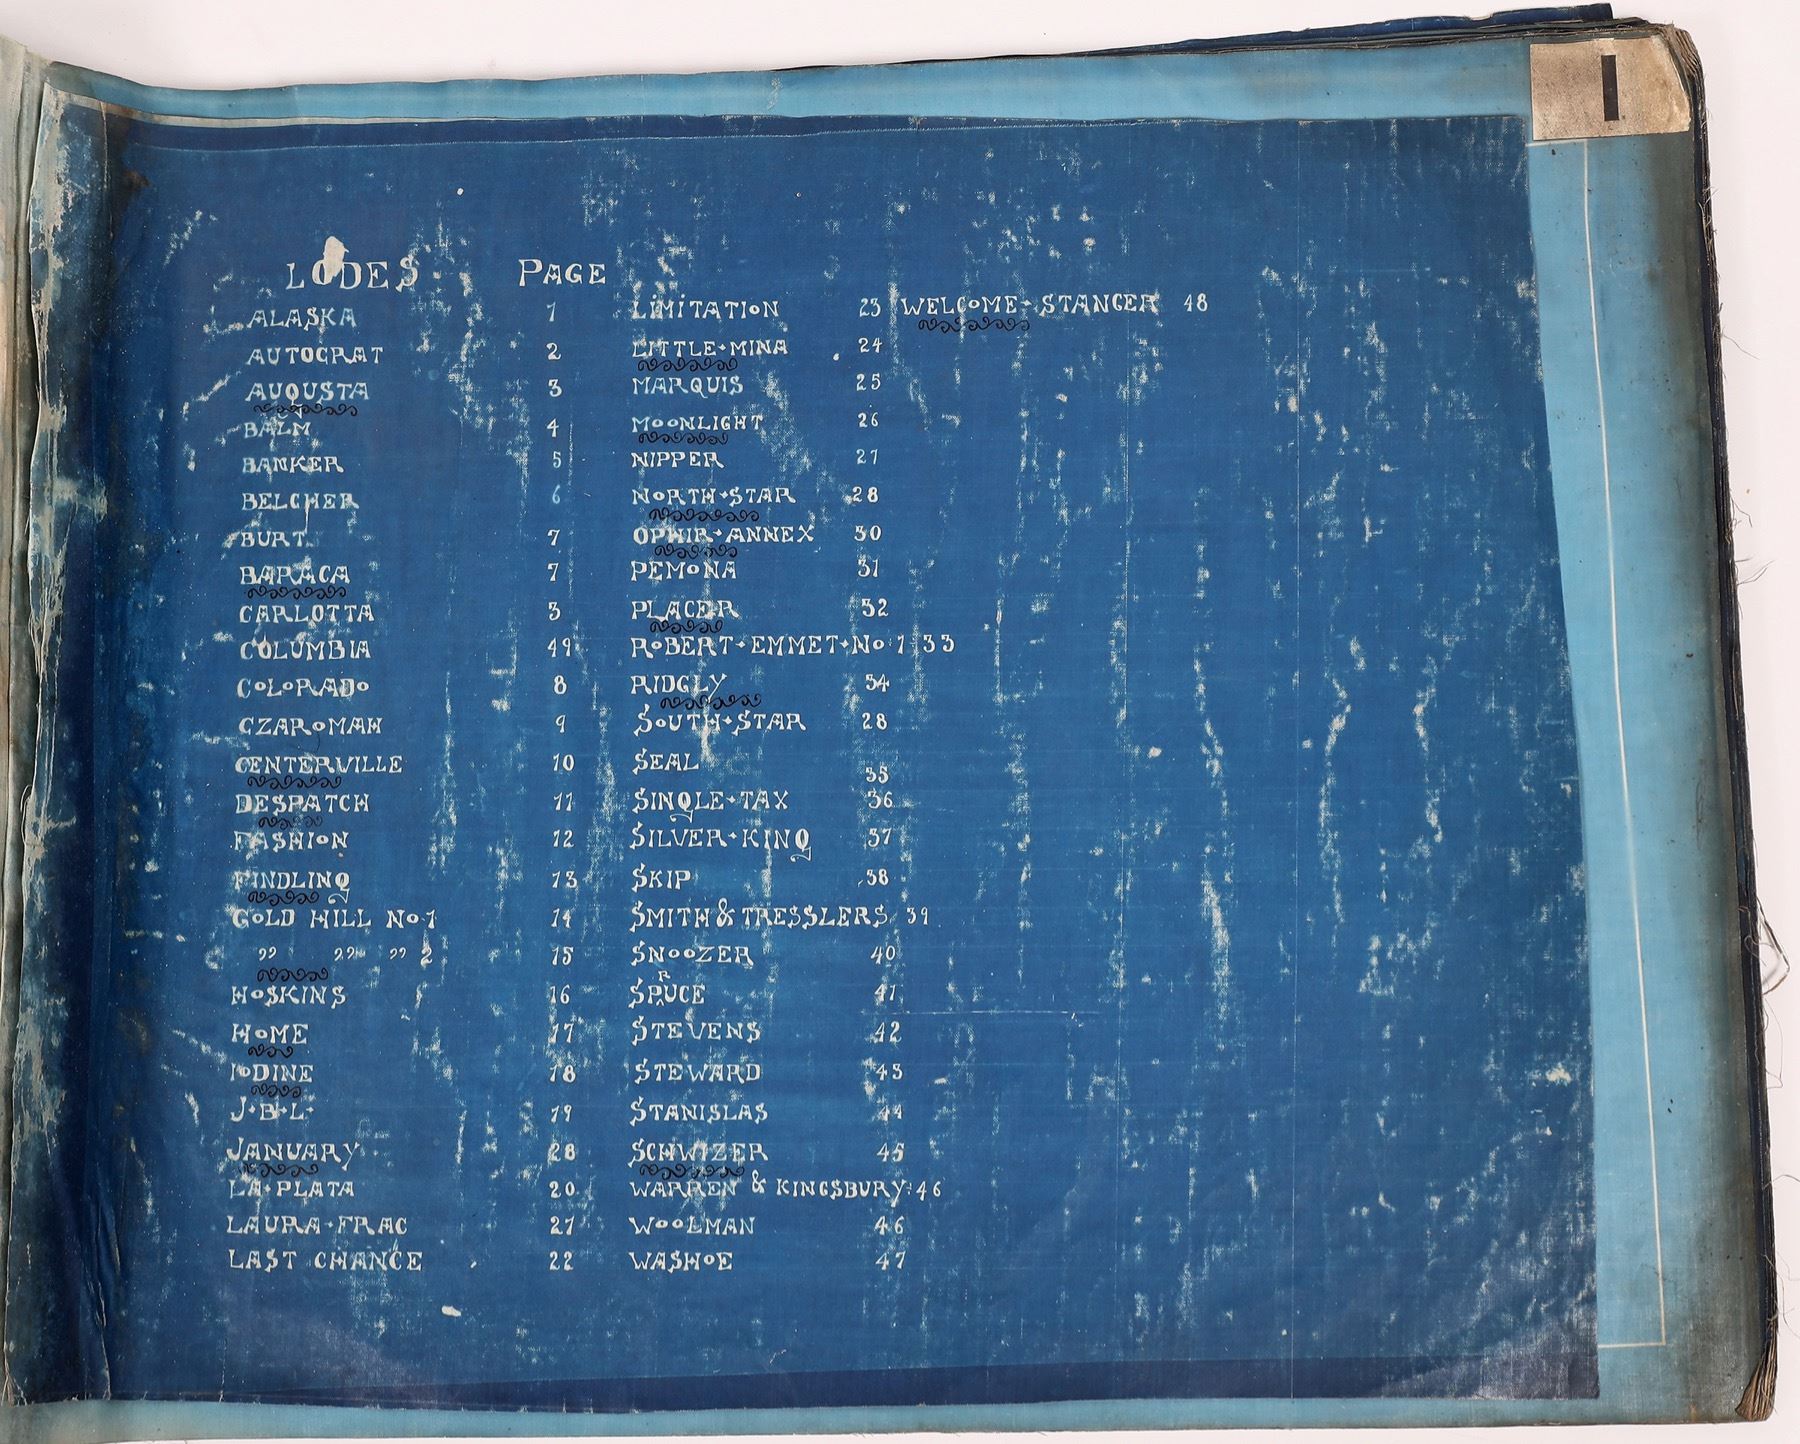 LODES PAGE
ALASKA 1
AUTOCRAT 2
AUGUSTA 3
BALM 4
BANKER 5
BELCHER 6
BURT 7
BARACA 7
CARLOTTA 3
COLUMBIA 49
COLORADO 8
CZAROMAH 9
CENTERVILLE 10
DESPATCH 11
FASHION 12
FINDLING 13
GOLD HILL No 1 14
" " " 2 15
HOSKINS 16
HOME 17
IODINE 18
J·B·L· 19
JANUARY 28
LA·PLATA 20
LAURA·FRAC 21
LAST CHANCE 22
LIMITATION 23
LITTLE·MINA 24
MARQUIS 25
MOONLIGHT 26
NIPPER 27
NORTH·STAR 28
OPHIR·ANNEX 30
PEMONA 31
PLACER 32
ROBERT·EMMET·No 1 33
RIDGLY 34
SOUTH·STAR 28
SEAL 35
SINGLE·TAX 36
SILVER·KING 37
SKIP 38
SMITH & TRESSLERS 39
SNOOZER 40
SPRUCE 41
STEVENS 42
STEWARD 43
STANISLAS 44
SCHWIZER 45
WARREN & KINGSBURY 46
WOOLMAN 46
WASHOE 47
WELCOME·STANGER 48
1